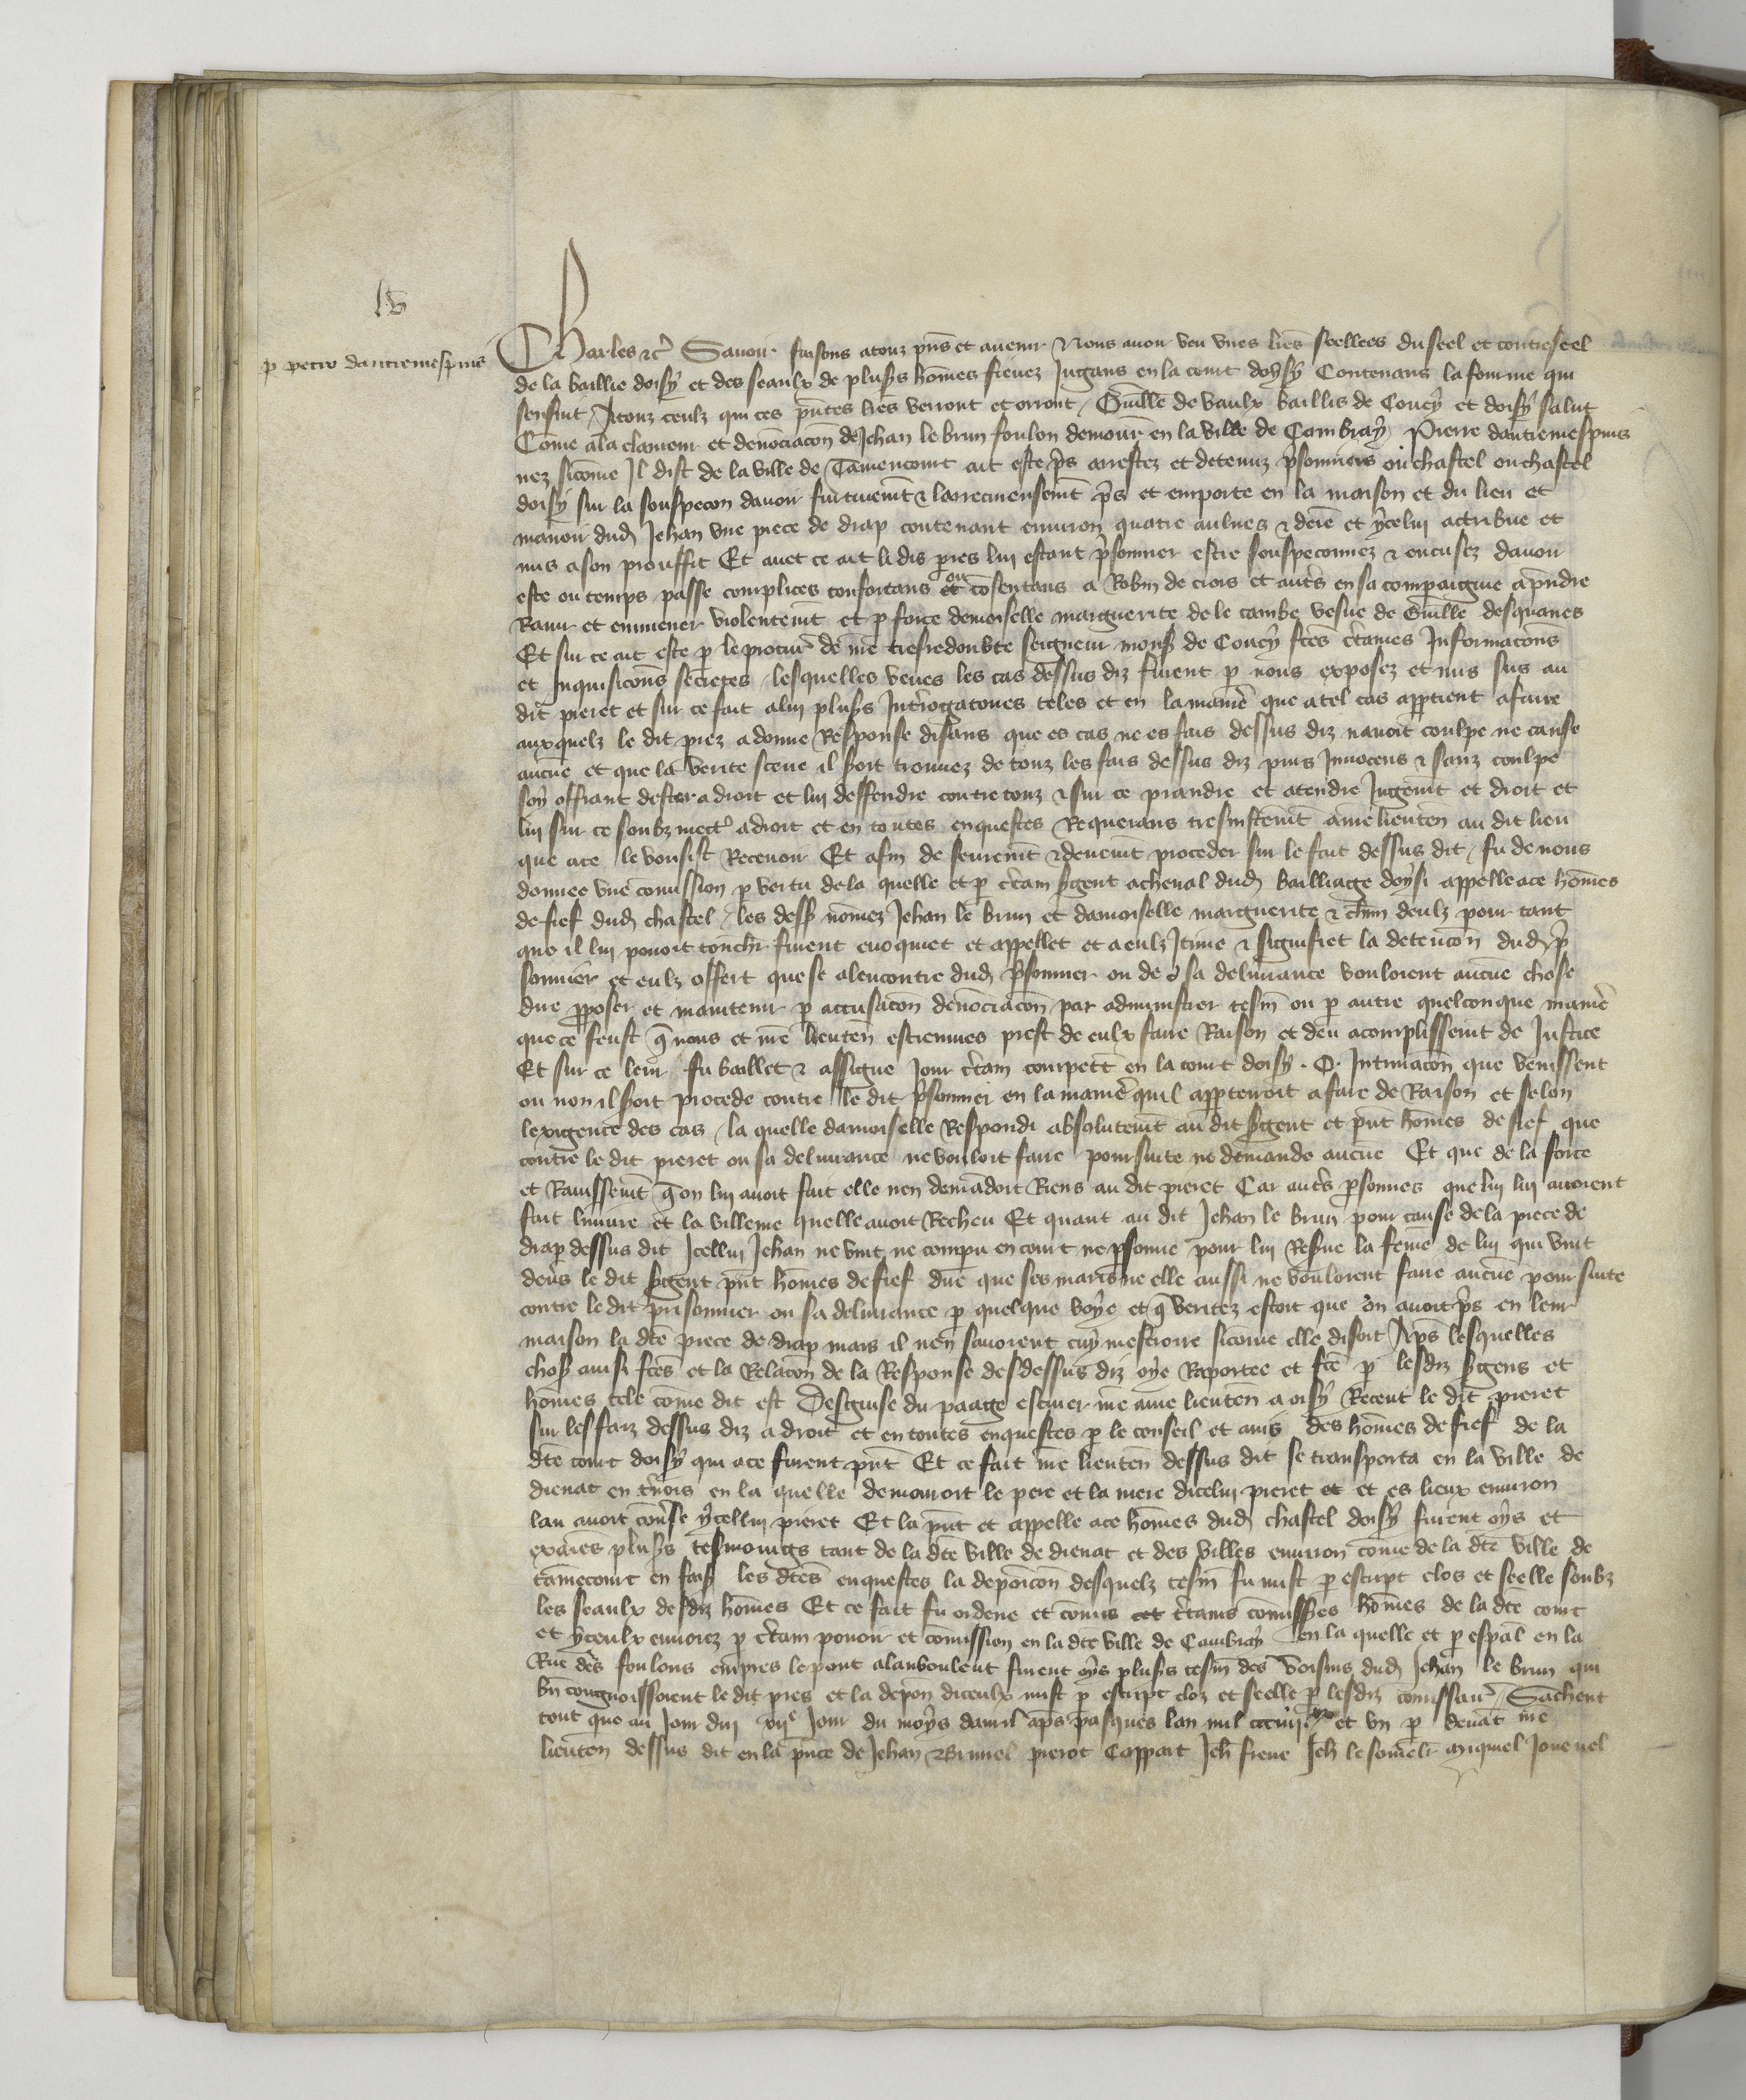 lv
p petro dantremespuis
Charles etc Savoir faisons a touz pns et avenir Nous avoir veu unes lres seellees du seel et contreseel
de la baillie doisy et des seaulx de plusrs homes fievez Jugans en la court doysy Contenans la fourme qui
sensuit / A touz ceulz qui ces pntes lres verront et orront / Guille de vaulx baillis de Coucy et doisy salut
Come a la clameur et denonciacon de Jehan le brun foulon demour en la ville de Cambray Pierre dantremespuis
nez sicome Il dist de la ville de Tamencourt ait este prs arrestez et detenuz prsonniers ou chastel ou chastel
doisy sur la souspecon davoir furtivemt et larrecineusemt prs et emporte en la maison et du lieu et
manoir dud Jehan une piece de drap contenant environ quatre aulnes et demie et ycelui actribue et
mis a son prouffit Et avec ce ait li dis pieres lui estant prsonnier este souspeconnez et encusez davoir
este ou temps passe complices confortans et ou cosentans a Robin de crois et autrs en sa compaignie a prndre
Ravir et enmener violentemt et p force demoiselle marguerite de le cambe vesve de Guille desquanes
Et sur ce ait este p le procur de me tresredoubte seigneur monsr de Coucy ftes ctaines Informacons
et Inquisicons secretes / lesquelles veues les cas dessus diz furent p nous exposez et mis sus au
dit pieret et sur ce fait a lui plusrs Introgatoires teles et en la manie que a tel cas apptient a faire
auxquelz le dit pierz a donne Response disans que es cas ne es fais dessus diz navoit coulpe ne cause
aucune et que la verite sceue il soit trouvez de touz les fais dessus diz purs Innocens et sanz coulpe
soy offrant dester a droit et lui deffendre contre touz et sur ce prandre et atendre Jugemt et droit et
lui sur ce soubzmectr a droit et en toutes enquestes Requerans tresinstamt a me lieuten au dit lieu
que a ce le vousist Recevoir Et afin de seuremt et deuemt proceder sur le fait dessus dit / fu de nous
donnee une comission p vertu de la quelle et p ctain sgent a cheval dud bailliage doysi appelle a ce homes
de fief dud chastel / les dess nomez Jehan le brun et damoiselle marguerite et chm deulz pour tant
que il lui povoit touchr furent evoquiet et appellet et a eulz Itime et signifiet la detencon dud pr
sonnier et eulz offert que se alencontre dud prsonnier ou de sa delivrance vouloient aucune chose
dire pposer et maintenir p accusacon denonciacon par administrer tesm ou p autre quelconque manie
que ce feust q nous et me lieuten estiennes prest de eulx faire Raison et deu acomplissemt de Justice
Et sur ce leur fu baillet et assigne Jour ctain compett en la court doisy . O Intimacon que venissent
ou non il soit procede contre le dit prsonnier en la manie quil apptenroit a faire de Raison et selon
lexigence des cas / la quelle damoiselle Respondi absolutemt au dit sgent et pnt homes de fief que
contre le dit pieret ou sa delivrance ne vouloit faire poursuite ne demande aucune Et que de la force
et Ravissemt q on lui avoit fait elle nen demadoit Riens au dit pieret Car autrs psonnes que lui lui avoient
fait linnire et la villenie quelle avoit Recheu Et quant au dit Jehan le brun pour cause de la piece de
drap dessus dit Icellui Jehan ne vint ne compu en court ne psonne pour lui Resve la feme de lui qui vint
devs le dit sgent pnt homes de fief dire que ses maris ne elle aussi ne vouloient faire aucune poursuite
contre le dit prisonnier ou sa delivrance p quelque voye et q veritez estoit que on avoit prs en leur
maison la dte piece de drap mais il nen savoient cuy mescroire sicome elle disoit Aps lesquelles
choss ainsi ftes et la Relacon de la Response des dessus diz oye Raportee et fte p lesdiz sgens et
homes tele come dit est Desguise du paage escuier me ame lieuten a oisy Receut le dit pieret
sur les faiz dessus diz a droit et en toutes enquestes p le conseil et avis des homes de fief de la
dte court doisy qui a ce furent pnt Et ce fait me lieuten dessus dit se transporta en la ville de
dienat en trois en la quelle demouroit le pere et la mere dicelui pieret et et es lieux environ
lau avoit converse ycellui pieret Et la pnt et appelle a ce homes dud chastel doisy furent oys et
exaies plusrs tesmoings tant de la dte ville de dienat et des villes environ come de la dte ville de
tamecourt en fais les dtes enquestes la deposicon desquelz tesm fu mise p escript clos et seelle soubz
les seaulx desdiz homes Et ce fait fu ordene et comis cet ctains comissres homes de la dte court
et yceulx envoiez p ctain povoir et comission en la dte ville de Cambray en la quelle et p espal en la
Rue des foulons empres le pont alanboulent furent oys plusrs tesm des voisins dud Jehan le brun qui
bn congnoissoient le dit piers et la depon diceulx mise p escript cloz et seelle p lesdiz comissair / Sachent
tout que au Jour dui xije Jour du moys davril aps pasques lan mil ccciiijxx et un p devat me
lieuten dessus dit en la pnce de Jehan Brunel pierot Cappart Jeh fieve Jeh le someilr miquiel Jouenel